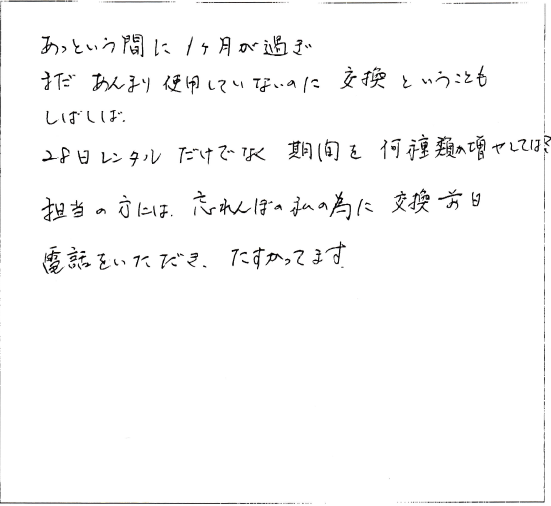 あっという間に 1ヶ月が過ぎ
まだ あんまり使用していないのに 交換ということも
しばしば.
28日レンタル だけでなく 期間を 何種類か増やしては?
担当の方には. 忘れんぼの私の為に 交換前日
電話をいただき、たすかってます.